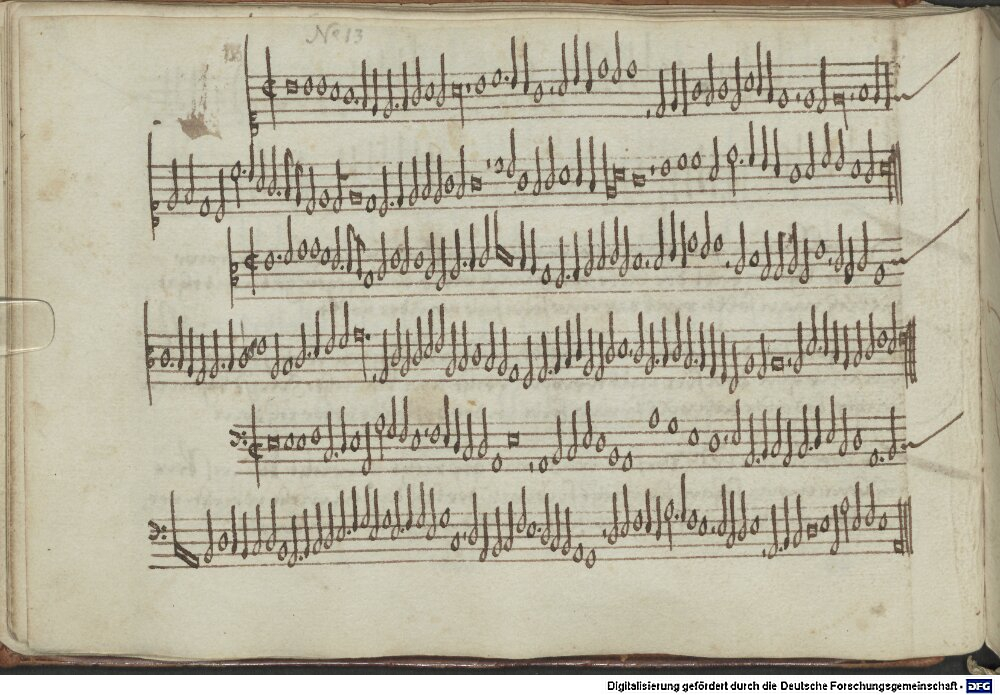 Nº 13
Digitalisierung gefördert durch die Deutsche Forschungsgemeinschaft - DFG